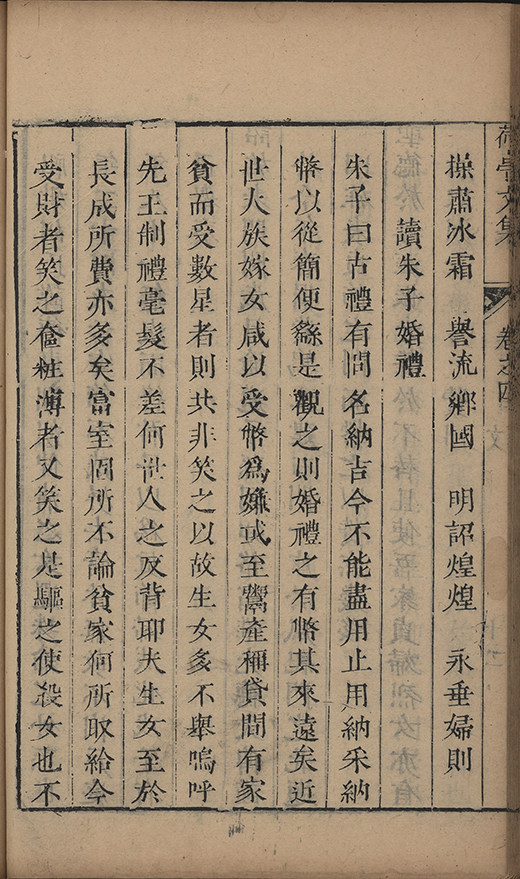 荷亭文集 卷之四 文
操肅冰霜 譽流鄉國 明詔煌煌 永垂婦則
讀朱子婚禮
朱子曰古禮有問名納吉今不能盡用止用納采納
幣以從簡便繇是觀之則婚禮之有幣其來遠矣近
世大族嫁女咸以受幣爲嫌或至鬻產稱貸間有家
貧而受數星者則共非笑之以故生女多不舉嗚呼
先王制禮毫髮不差何世人之反背耶夫生女至於
長成所費亦多矣富室固所不論貧家何所取給今
受財者笑之奩粧薄者又笑之是驅之使殺女也不